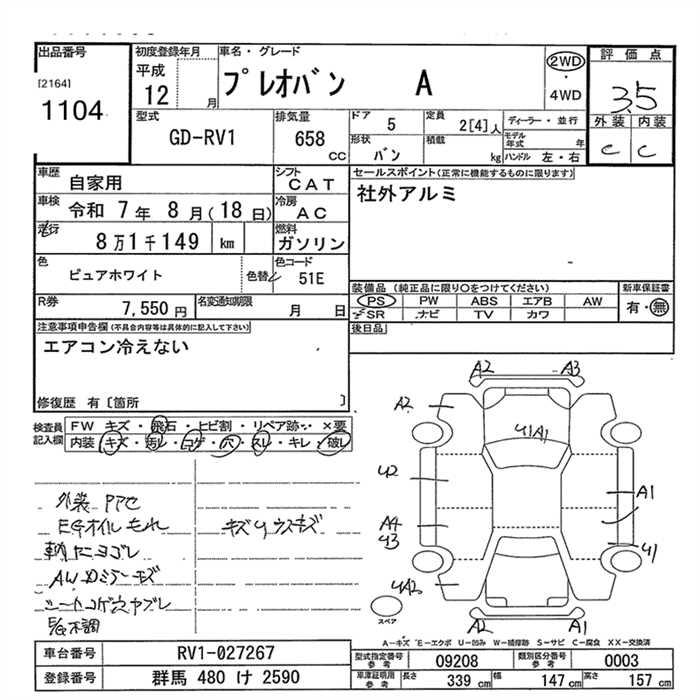 出品番号 初度登録年月 車名・グレード 評価点
[2164] 平成 プレオバン A 2WD ・ 4WD 3.5
1104 12 月
型式 排気量 ドア 5 定員 2[4]人 ディーラー・並行 外装 内装
GD-RV1 658 CC 形状 バン 積載 kg モデル年式 年 C C
ハンドル 左・右
車歴 自家用 シフト CAT セールスポイント(正常に機能するものに限ります)
車検 令和 7年 8月(18日) 冷房 AC 社外アルミ
走行 8万1千149 km 燃料 ガソリン
色 ピュアホワイト 色替 色コード 51E
装備品(純正品に限り○をつけてください) 新車保証書
R券 7,550円 名変通知期限 月 日 PS PW ABS エアB AW 有・無
SR ナビ TV カワ
注意事項申告欄(不具合内容等は具体的に記入して下さい) 後日品
エアコン冷えない
修復歴 有〔箇所 〕
検査員記入欄 FW キズ・飛石・ヒビ割・リペア跡・×要
内装 キズ・汚レ・コゲ・穴・スレ・キレ・破レ
外装
EGオイルもれ キズウスキズ
AWDミラーキズ
EG不調
A2 A3
A2 U1A1
U2 A1
A4
U3 U1
UA2
A2 A1
スペア
A−キズ E−エクボ U−凹み W−補修跡 S−サビ C−腐食 XX−交換済
車台番号 RV1-027267 型式指定番号 参考 09208 類別区分番号 参考 0003
登録番号 群馬 480 け 2590 車庫証明用 参考 長さ 339 cm 幅 147 cm 高さ 157 cm